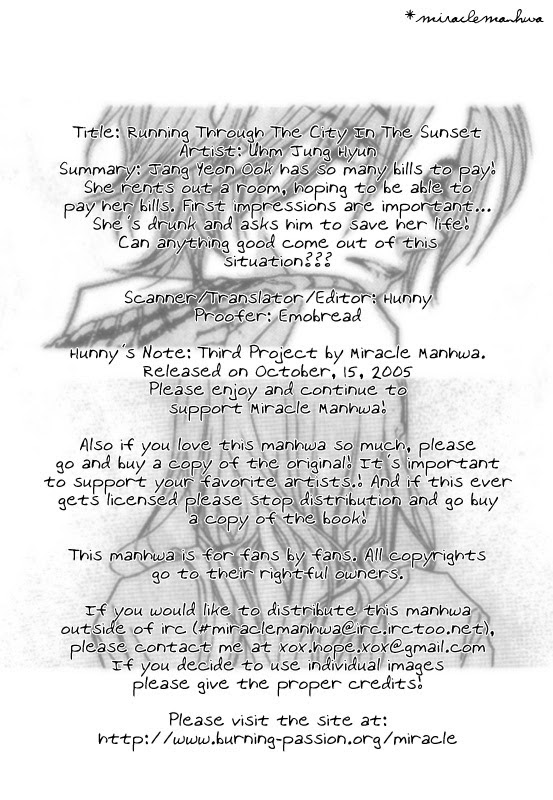 *miraclemanhwa
Title: Running Through The City In The Sunset
Artist: Uhm Jung Hyun
Summary: Jang Yeon Ook has so many bills to pay!
She rents out a room, hoping to be able to
pay her bills. First impressions are important...
She's drunk and asks him to save her life!
Can anything good come out of this
situation???
Scanner/Translator/Editor: Hunny
Proofer: Emobread
Hunny's Note: Third Project by Miracle Manhwa.
Released on October, 15, 2005
Please enjoy and continue to
support Miracle Manhwa!
Also if you love this manhwa so much, please
go and buy a copy of the original! It's important
to support your favorite artists.! And if this ever
gets licensed please stop distribution and go buy
a copy of the book!
This manhwa is for fans by fans. All copyrights
go to their rightful owners.
If you would like to distribute this manhwa
outside of irc (#miraclemanhwa@irc.irctoo.net),
please contact me at xox.hope.xox@gmail.com
If you decide to use individual images
please give the proper credits!
Please visit the site at:
http://www.burning-passion.org/miracle